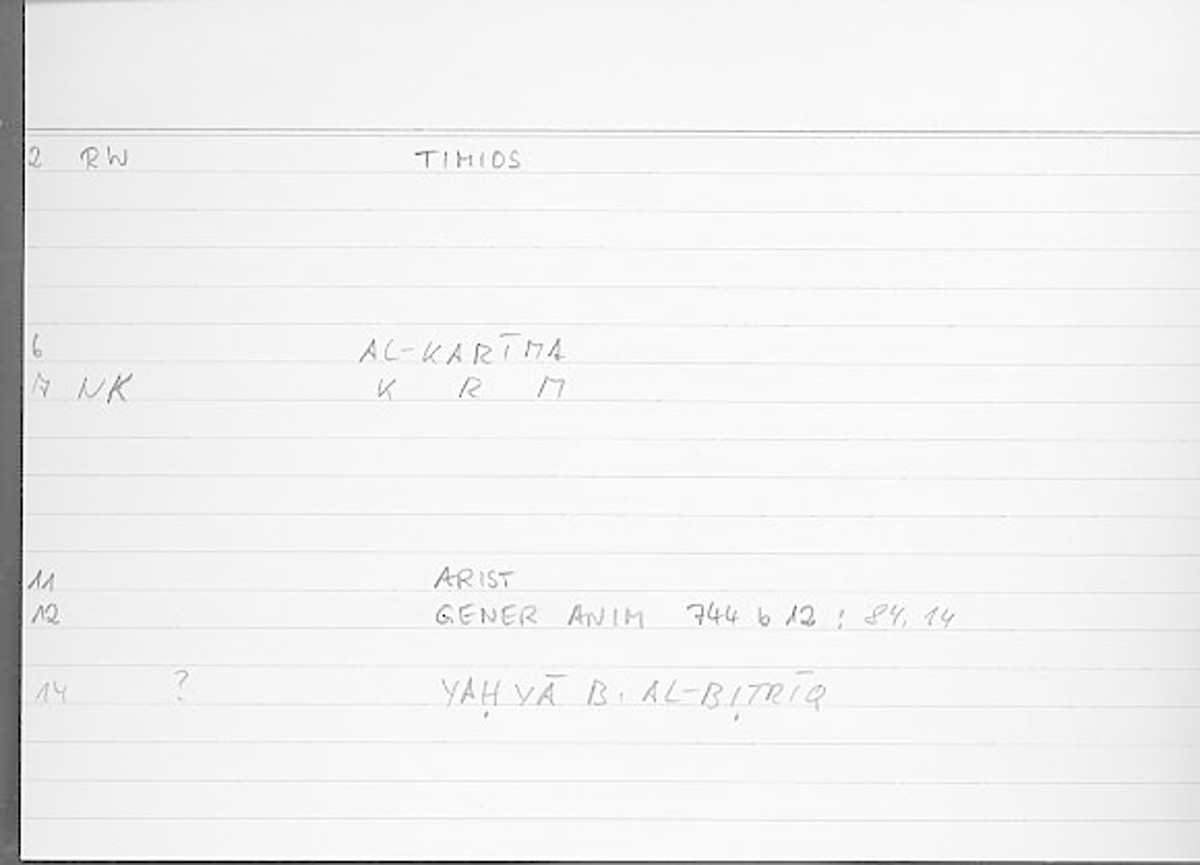 2 RW TIMIOS
6 AL-KARĪMA
17 NK K R M
11 ARIST
12 GENER ANIM 744 b 12 : 84, 14
14 ? YAḤYĀ B. AL-BIṬRĪQ